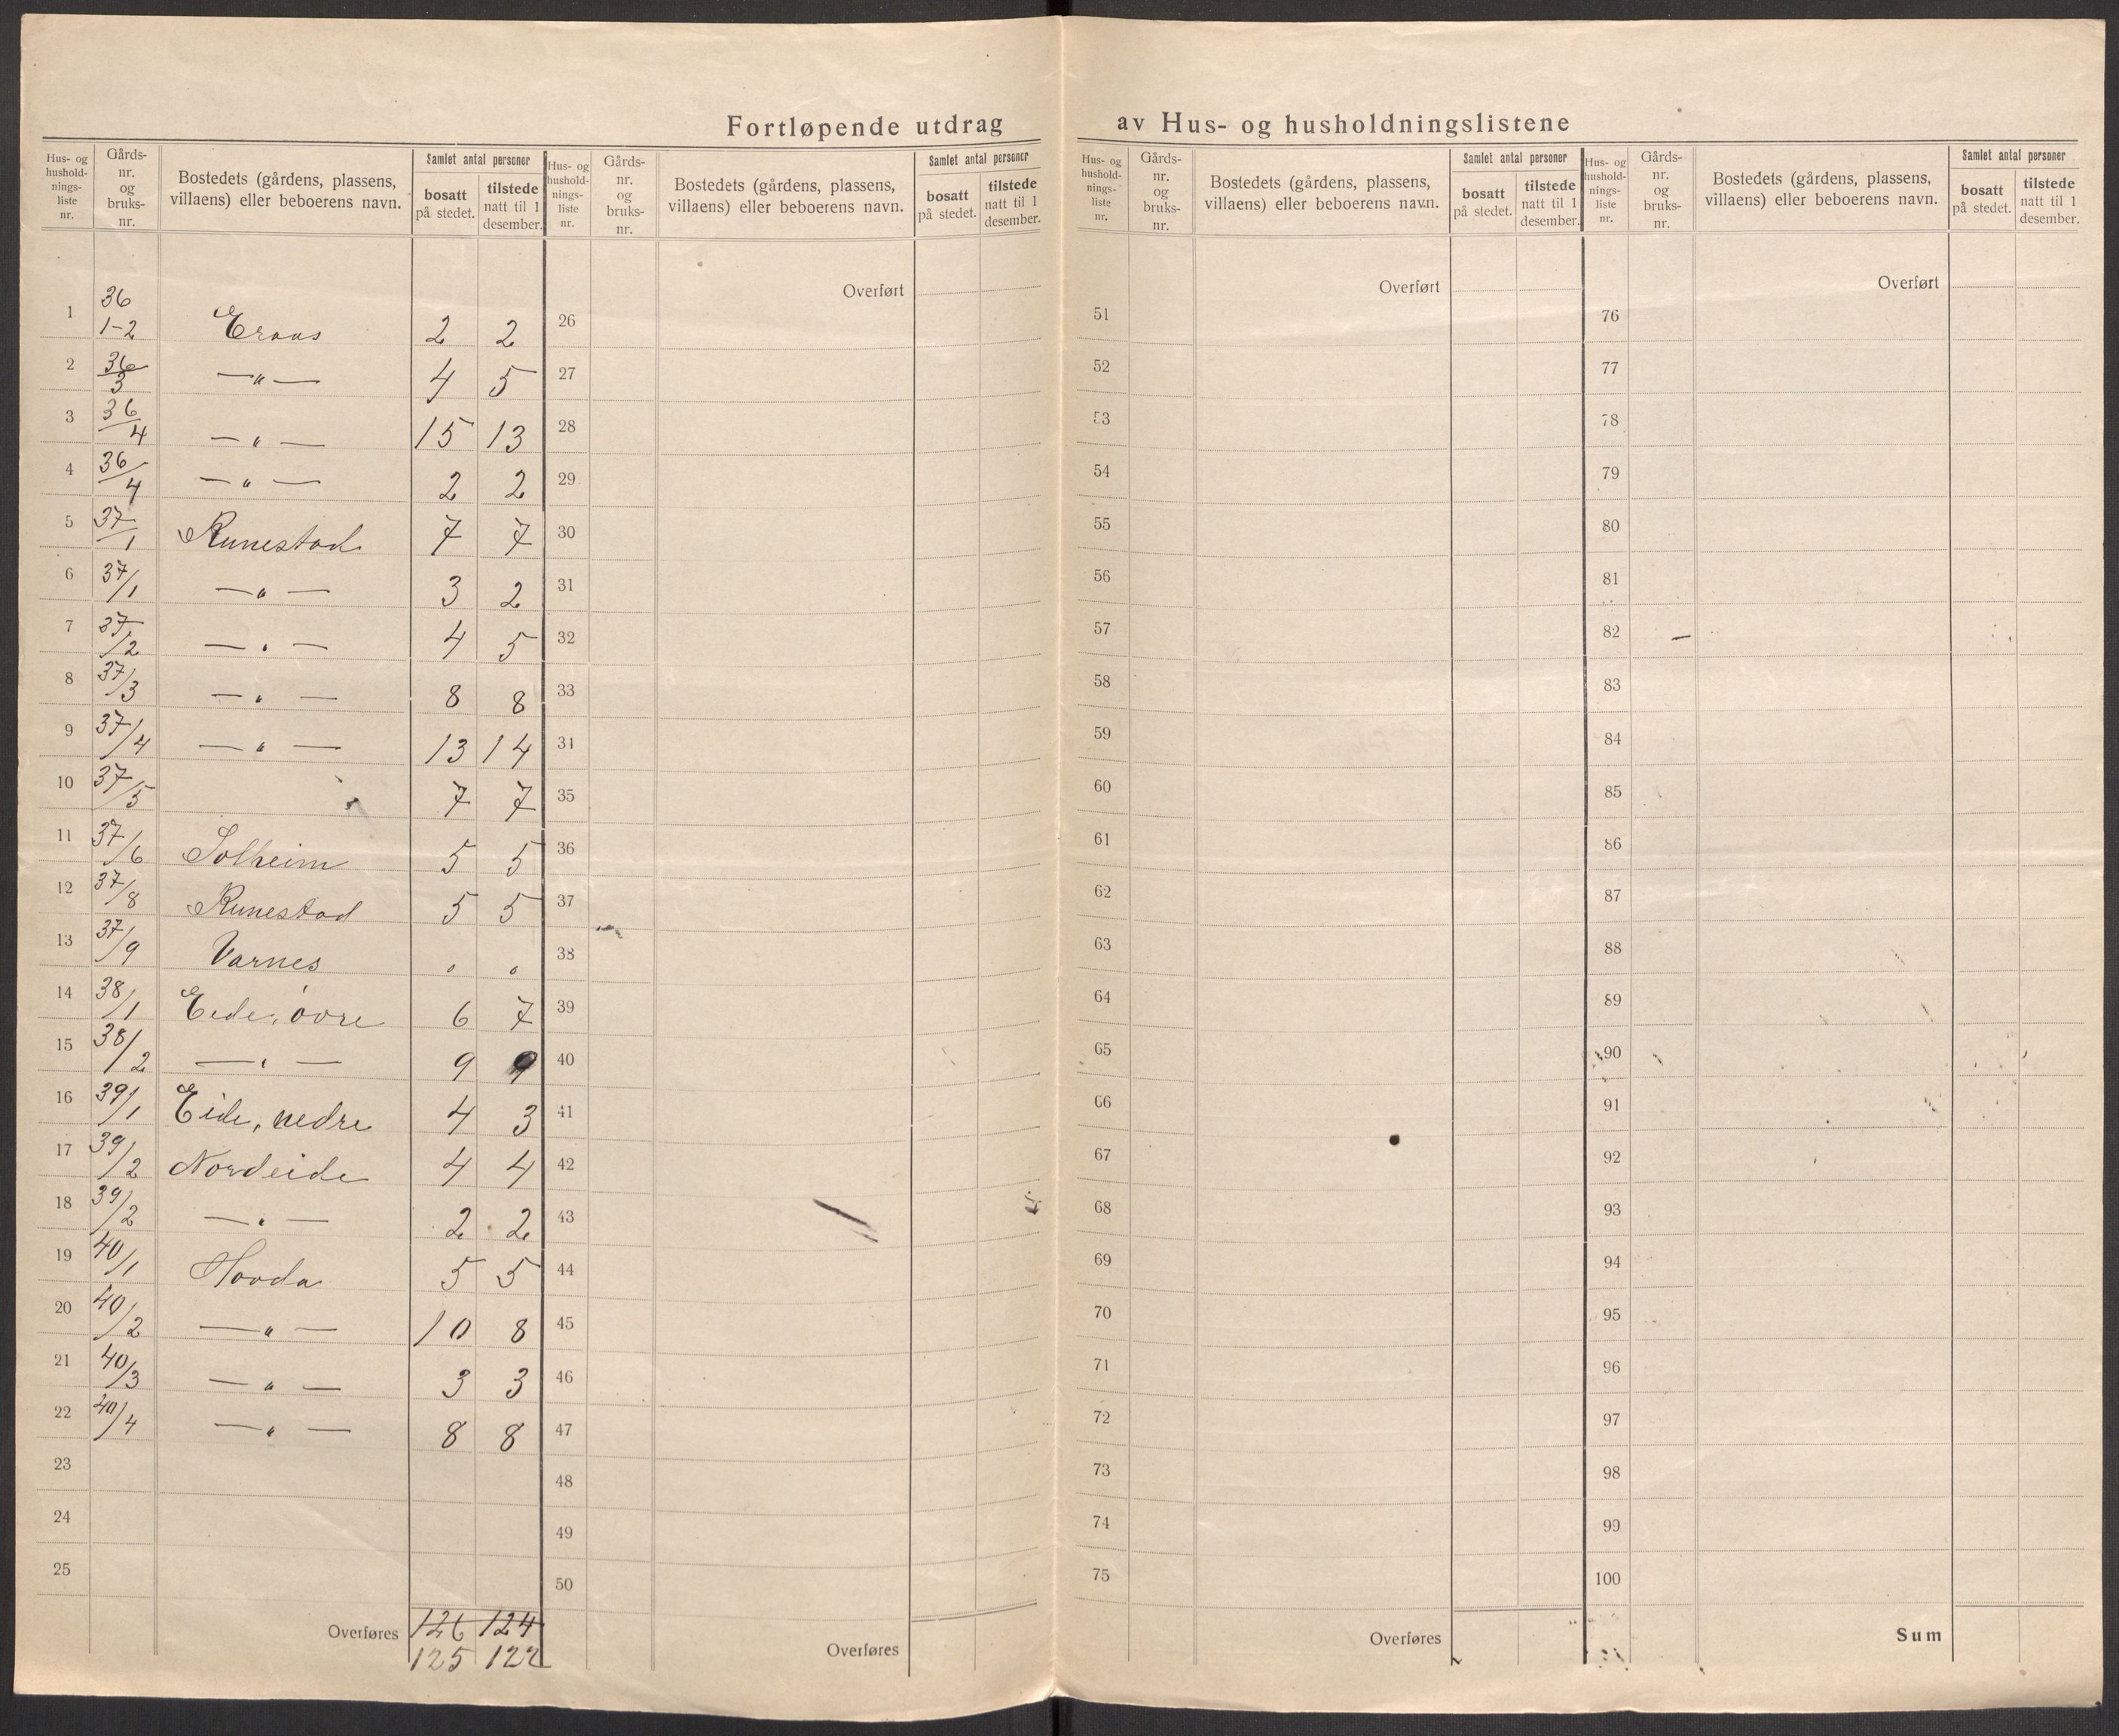 Fortløpende utdrag av Hus- og husholdningslistene
Hus- og hushold-nings-liste nr. | Gårds-nr. og bruks-nr. | Bostedets (gårdens, plassens, villaens) eller beboerens navn. | Samlet antal personer | bosatt på stedet. | tilstede natt til 1 desember.
1 36 1-2 Eraas 2 2
2 36/3 —"— 4 5
3 36/4 —"— 15 13
4 36/4 —"— 2 2
5 37/1 Runestad 7 7
6 37/1 —"— 3 2
7 37/2 —"— 4 5
8 37/3 —"— 8 8
9 37/4 —"— 13 14
10 37/5 7 7
11 37/6 Solheim 5 5
12 37/8 Runestad 5 5
13 37/9 Varnes " "
14 38/1 Eide, övre 6 7
15 38/2 —"— 9 9
16 39/1 Eide, nedre 4 3
17 39/2 Nordeide 4 4
18 39/2 —"— 2 2
19 40/1 Hovda 5 5
20 40/2 —"— 10 8
21 40/3 —"— 3 3
22 40/4 —"— 8 8
23
24
25
Overføres 126 124
125 122
Hus- og hushold-nings-liste nr. | Gårds-nr. og bruks-nr. | Bostedets (gårdens, plassens, villaens) eller beboerens navn. | Samlet antal personer | bosatt på stedet. | tilstede natt til 1 desember.
Overført
26
27
28
29
30
31
32
33
34
35
36
37
38
39
40
41
42
43
44
45
46
47
48
49
50
Overføres
Hus- og hushold-nings-liste nr. | Gårds-nr. og bruks-nr. | Bostedets (gårdens, plassens, villaens) eller beboerens navn. | Samlet antal personer | bosatt på stedet. | tilstede natt til 1 desember.
Overført
51
52
53
54
55
56
57
58
59
60
61
62
63
64
65
66
67
68
69
70
71
72
73
74
75
Overføres
Hus- og hushold-nings-liste nr. | Gårds-nr. og bruks-nr. | Bostedets (gårdens, plassens, villaens) eller beboerens navn. | Samlet antal personer | bosatt på stedet. | tilstede natt til 1 desember.
Overført
76
77
78
79
80
81
82
83
84
85
86
87
88
89
90
91
92
93
94
95
96
97
98
99
100
Sum